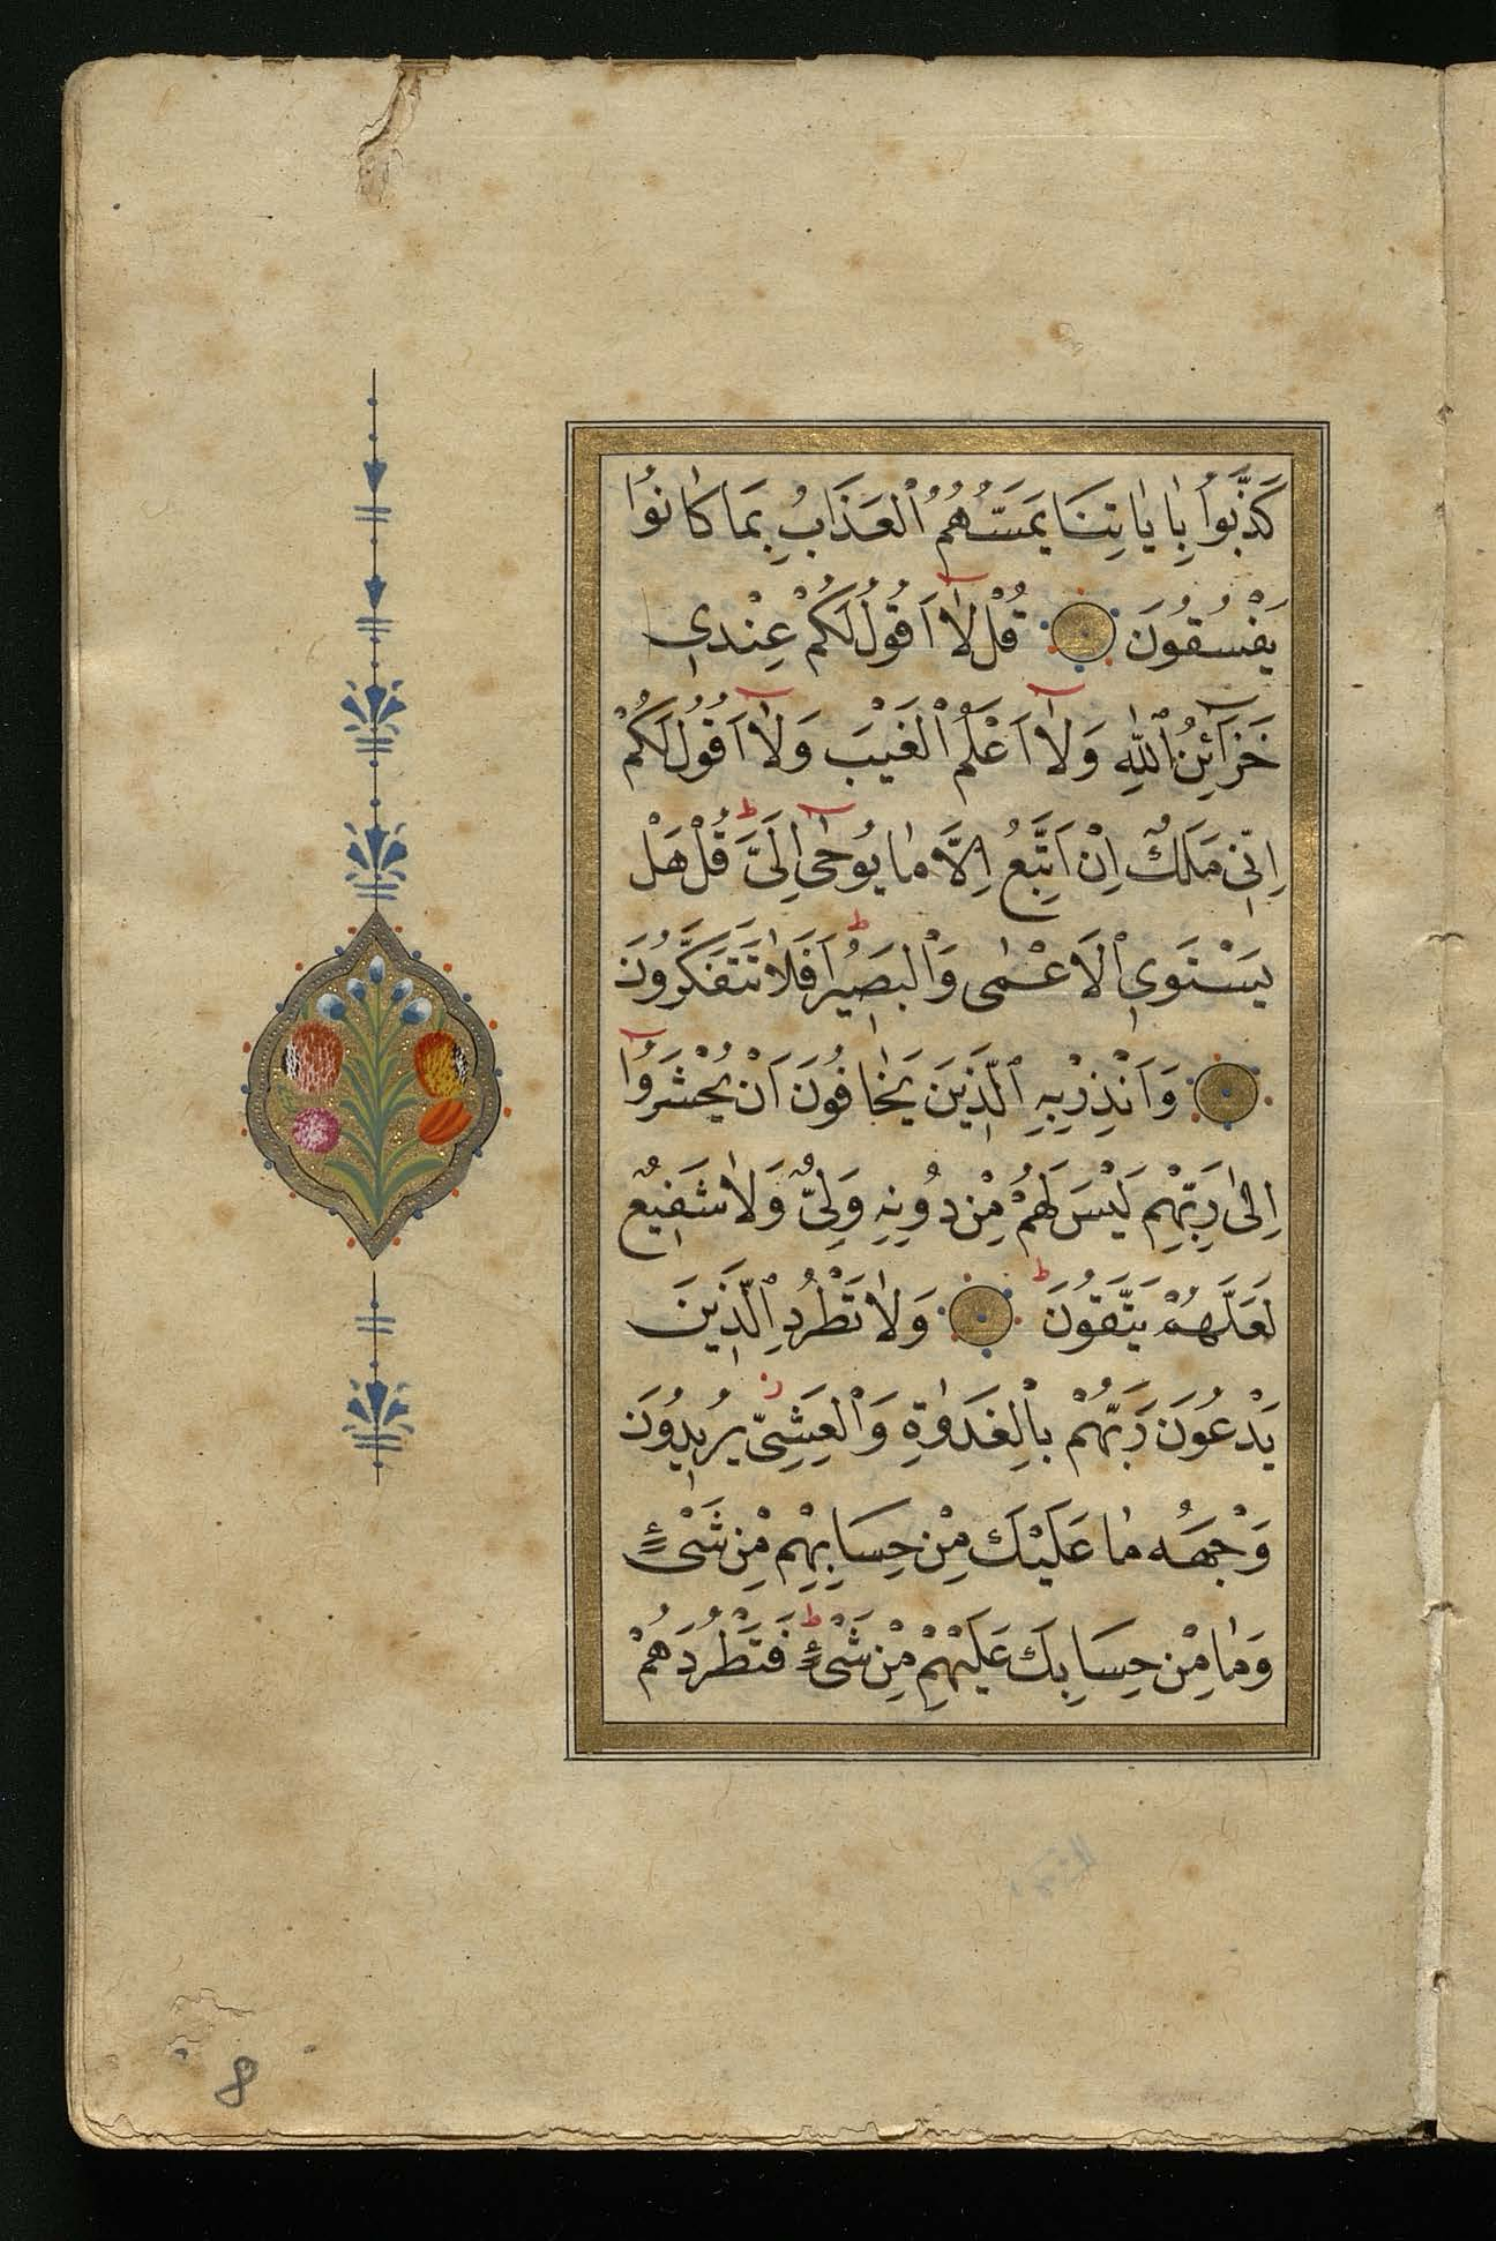 كَذَّبُوا بِاٰيَاتِنَا يَمَسُّهُمُ الْعَذَابُ بِمَا كَانُوا
يَفْسُقُونَ قُلْ لَآ اَقُولُ لَكُمْ عِنْدِي
خَزَآئِنُ اللّٰهِ وَلَآ اَعْلَمُ الْغَيْبَ وَلَآ اَقُولُ لَكُمْ
اِنِّي مَلَكٌ اِنْ اَتَّبِعُ اِلَّا مَا يُوحٰٓى اِلَيَّ ط قُلْ هَلْ
يَسْتَوِي الْاَعْمٰى وَالْبَصِيرُ ط اَفَلَا تَتَفَكَّرُونَ
وَاَنْذِرْ بِهِ الَّذِينَ يَخَافُونَ اَنْ يُحْشَرُوٓا
اِلٰى رَبِّهِمْ لَيْسَ لَهُمْ مِنْ دُونِهِ وَلِيٌّ وَلَا شَفِيعٌ
لَعَلَّهُمْ يَتَّقُونَ ط وَلَا تَطْرُدِ الَّذِينَ
يَدْعُونَ رَبَّهُمْ بِالْغَدٰوةِ وَالْعَشِيِّ ز يُرِيدُونَ
وَجْهَهُ مَا عَلَيْكَ مِنْ حِسَابِهِمْ مِنْ شَيْءٍ
وَمَا مِنْ حِسَابِكَ عَلَيْهِمْ مِنْ شَيْءٍ ط فَتَطْرُدَهُمْ
8